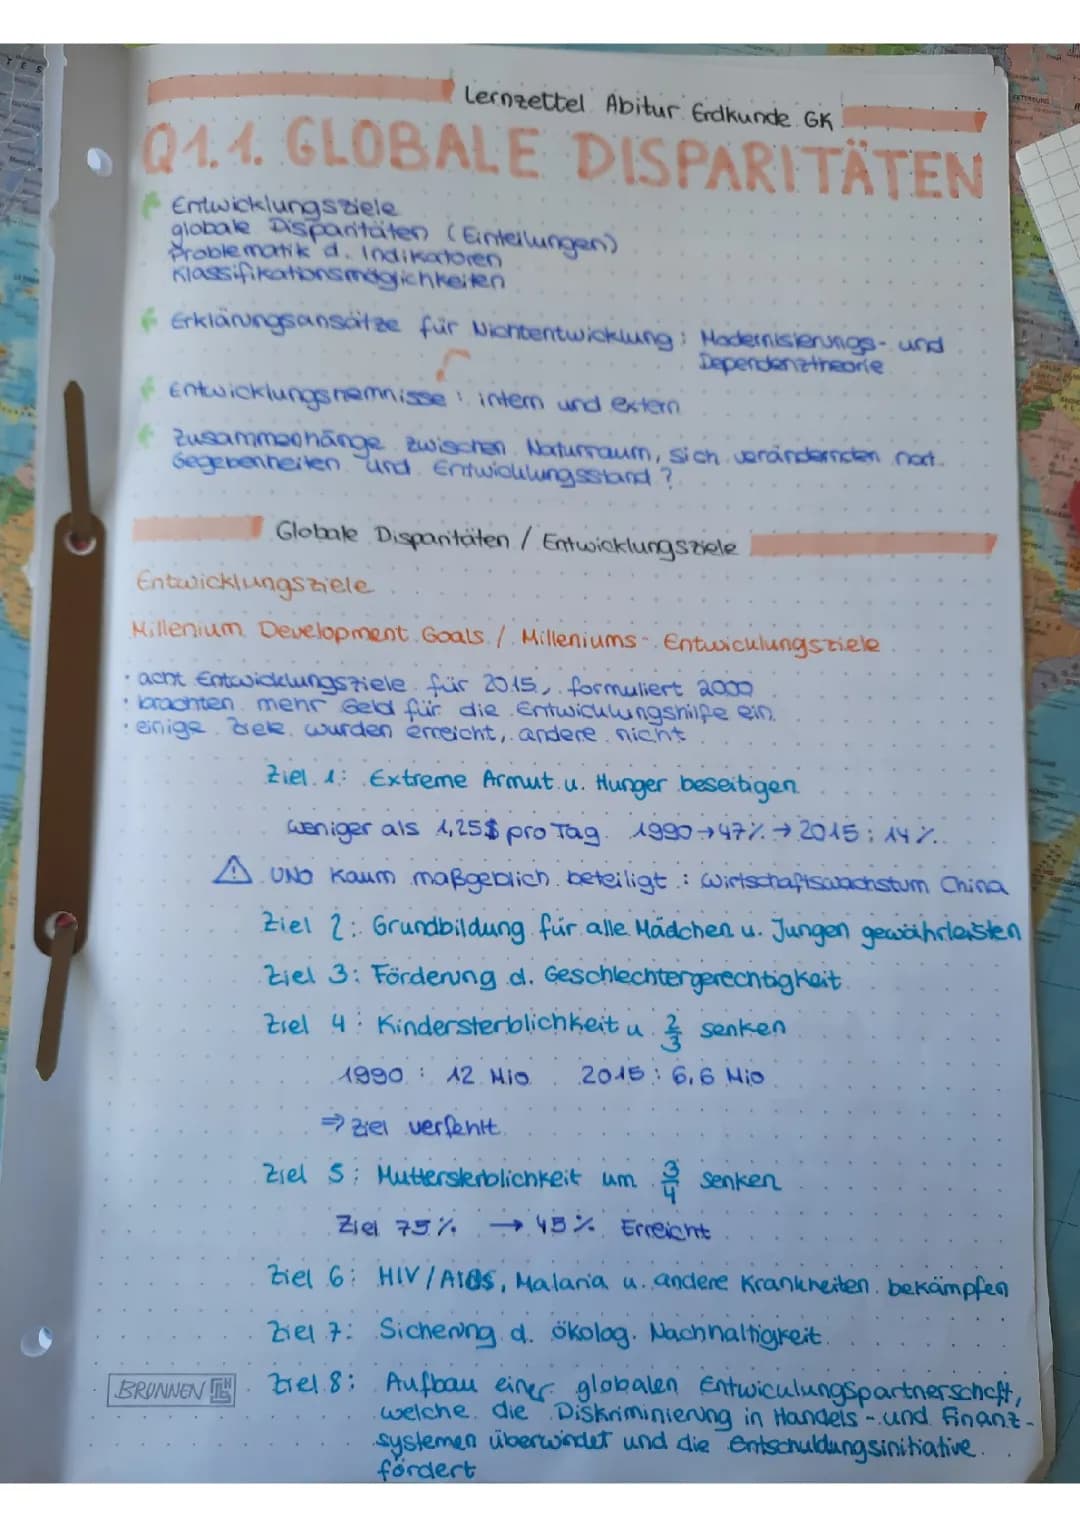 Lernzettel Abitur Erdkunde GK
Q1.1. GLOBALE DISPARITÄTEN
Entwicklungsziele
globale Disparitäten (Einteilungen)
Problematik d. Indikatoren
Klassifikationsmöglichkeiten
Erklärungsansätze für Nichtentwicklung: Modernisierungs- und
Dependenztheorie
Entwicklungshemnisse: intern und extern
Zusammenhänge zwischen Naturraum, sich verändernden nat.
Gegebenheiten und Entwicklungsstand?
Globale Disparitäten / Entwicklungsziele
Entwicklungsziele
Millenium Development Goals / Milleniums-Entwicklungsziele
· acht Entwicklungsziele für 2015, formuliert 2000
· brachten mehr Geld für die Entwicklungshilfe ein
· einige Ziele wurden erreicht, andere nicht
Ziel 1: Extreme Armut u. Hunger beseitigen
weniger als 1,25$ pro Tag 1990→47% → 2015: 14%
⚠ UNO kaum maßgeblich beteiligt: Wirtschaftswachstum China
Ziel 2: Grundbildung für alle Mädchen u. Jungen gewährleisten
Ziel 3: Förderung d. Geschlechtergerechtigkeit
Ziel 4: Kindersterblichkeit u 2/3 senken
1990: 12 Mio 2015: 6,6 Mio
⇒ Ziel verfehlt
Ziel 5: Muttersterblichkeit um 3/4 senken
Ziel 75% → 45% Erreicht
Ziel 6: HIV/AIDS, Malaria u. andere Krankheiten bekämpfen
Ziel 7: Sicherung d. ökolog. Nachhaltigkeit
BRUNNEN
Ziel 8: Aufbau einer globalen Entwicklungspartnerschaft,
welche die Diskriminierung in Handels- und Finanz-
systemen überwindet und die Entschuldungsinitiative
fördert